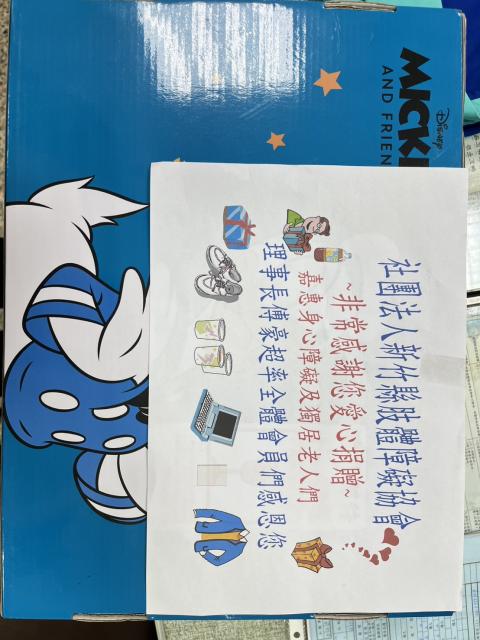 Disney
MICKE
AND FRIEN
社團法人新竹縣肢體障礙協會
~非常感謝您愛心捐贈~
嘉惠身心障礙及獨居老人們
理事長傅豪超率全體會員們感恩您